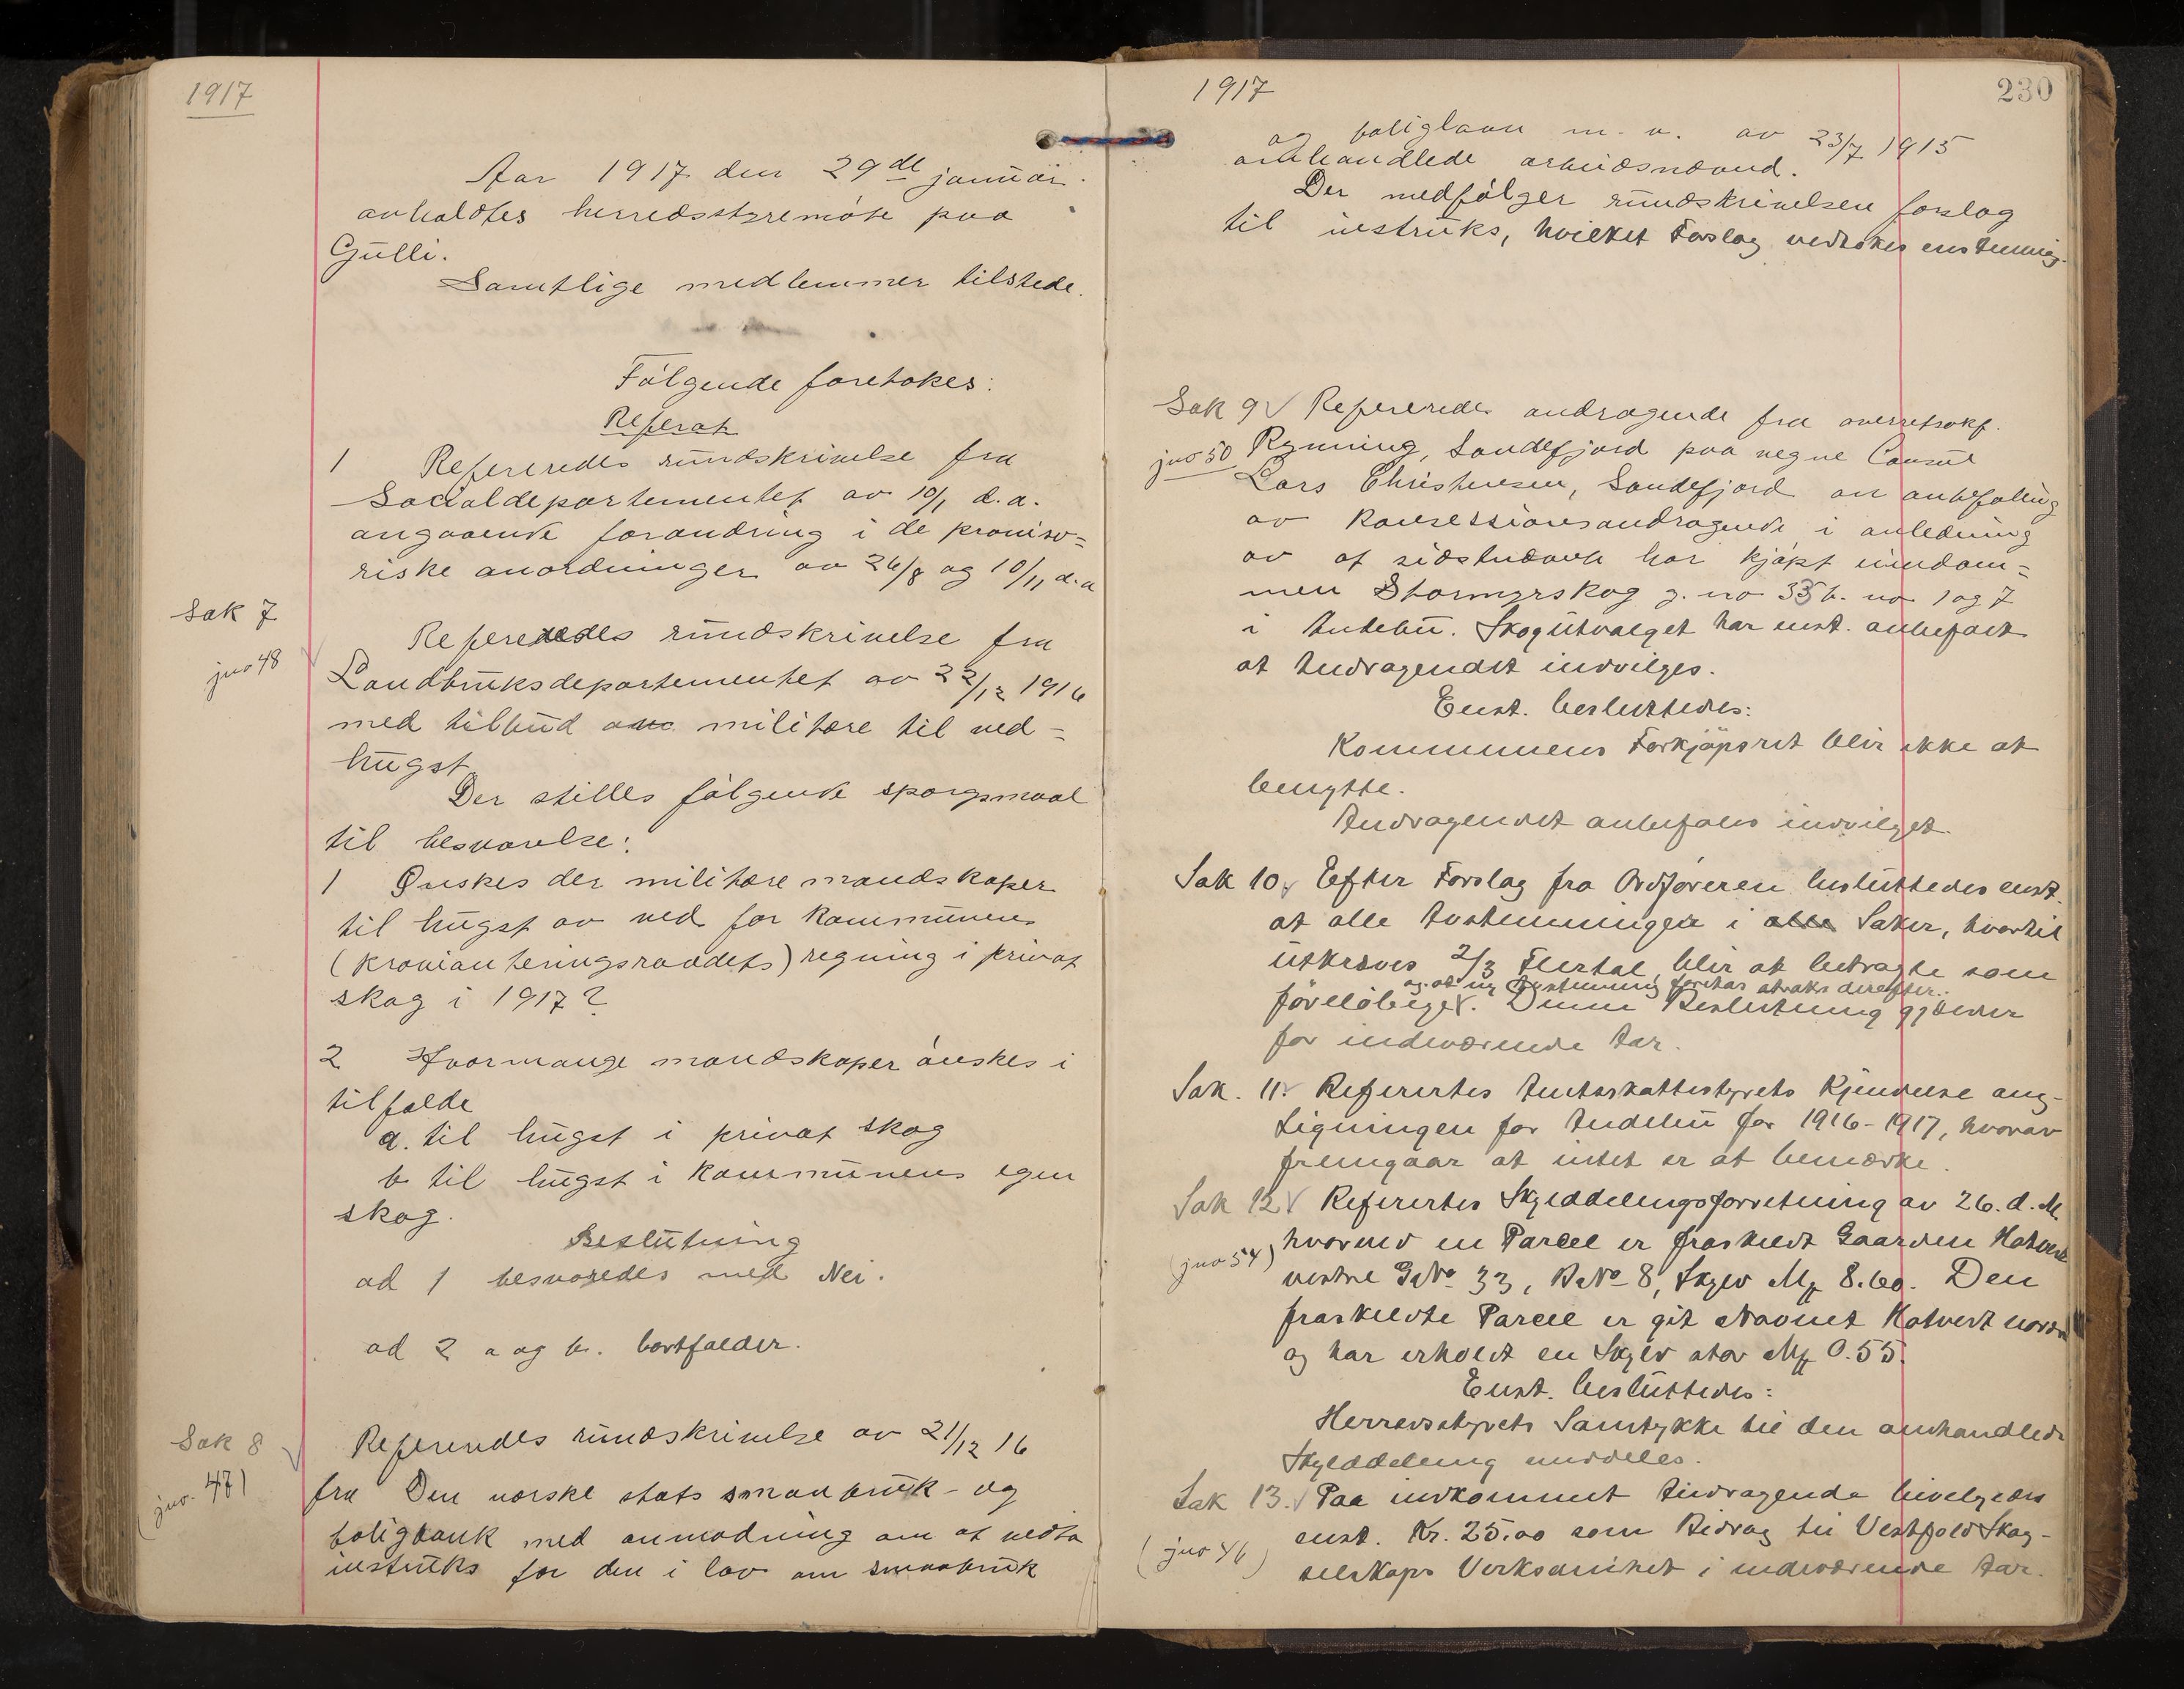 1917
Aar 1917 den 29de januar
avholdtes herredsstyremöte paa
Gulli.
Samtlige medlemmer tilstede.
Fölgende foretokes:
Referat
1 Refereredes rundskrivelse fra
Socialdepartementet av 10/1 d.a.
angaaende forandring i de proviso=
riske anordninger av 26/8 og 10/11 d.a
Sak 7
Refereredes rundskrivelse fra
jno 48
Landbruksdepartementet av 22/12 1916
med tilbud av militære til ved=
hugst
Der stilles fölgende sporgsmaal
til besvarelse:
1 Önskes der militære mandskaper
til hugst av ved for kommunens
(provianteringsraadets) regning i privat
skog i 1917?
2 Hvormange mandskaper önskes i
tilfælde
a. til hugst i privat skog
b til hugst i kommunens egen
skog.
Beslutning
ad 1 besvaredes med Nei.
ad 2 a og b. bortfalder.
Sak 8
Refereredes rundskrivelse av 21/12 16
(jno. 47)
fra Den norske stats smaabruk- og
boligbank med anmodning om at vedta
instruks for den i lov om smaabruk
1917
230
og boliglaan m. v. av 23/7 1915
omhandlede arbeidsnævnd.
Der medfölger rundskrivelsen forslag
til instruks, hvilket Forslag vedtokes enstemmig.
Sak 9 Refereredes andragende fra overretssakf.
jno 50 Rynning, Sandefjord paa vegne Consul
Lars Christensen, Sandefjord om anbefaling
av konsessionsandragende i anledning
av at sidstnævnte har kjöpt eiendom=
men Stormyrskog g. no 33 b. no 1 og 7
i Andebu. Skogutvalget har enst. anbefalt
at Andragendet indvilges.
Enst. besluttedes:
Kommunens Forkjöpsret blir ikke at
benytte.
Andragendet anbefales indvilget.
Sak 10. Efter Forslag fra Ordföreren besluttedes enst.
at alle Avstemninger i alle Saker, hvortil
utkræves 2/3 Flertal, blir at betragte som
og at ny Avstemning foretas straks derefter.
förelöbige. Denne Beslutning gjælder
for indeværende Aar.
Sak. 11. Referertes Amtsskattestyrets Kjendelse ang.
Ligningen for Andebu for 1916-1917, hvorav
fremgaar at intet er at bemærke.
Sak 12 Referertes Skylddelingsforretning av 26. d. M.
(jno 54) hvorved en Parcel er fraskilt Gaarden Hotvedt
vestre G.No 33, B.No 8, Skyld Mk 8.60. Den
fraskildte Parcel er git Navnet Hotvedt nordre
og har erholdt en Skyld stor Mk 0.55.
Enst. besluttedes:
Herredsstyrets Samtykke til den omhandlede
Skylddeling meddeles.
Sak 13. Paa indkommet Andragende bevilgedes
(jno 46) enst. Kr. 25.00 som Bidrag til Vestfold Skog-
selskaps Verksomhet i indeværende Aar.